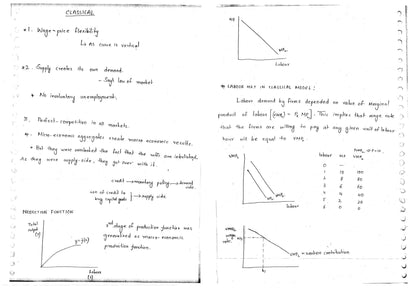 CLASSICAL
*1. Wage-price flexibility
↳ AS curve is vertical
*2. Supply creates its own demand.
- Say's law of market
* No involuntary unemployment.
3. Perfect-competition in all markets.
4. Micro-economic aggregates create macro-economic results.
* But they overlooked the fact that the
As they were supply-side, they got over with it.
credit → monetary policy → demand side
use of credit to buy capital goods → supply side
PRODUCTION FUNCTION
Total output (Y)
y=f(L)
Labour (L)
2nd stage of production function was
generalised as macro-economic
production function.
Labour
* LABOUR MKT IN CLASSICAL MODEL:
Labour demand by firms depended on value of marginal
product of labour. This implies that wage rate
that the firms are willing to pay at any given unit of labour
hour will be equal to VMPL
Labour
labour
0
1 10 100
2 8 80
3 6 60
4 4 40
5 2 20
6 0 0
wage rate
Labour